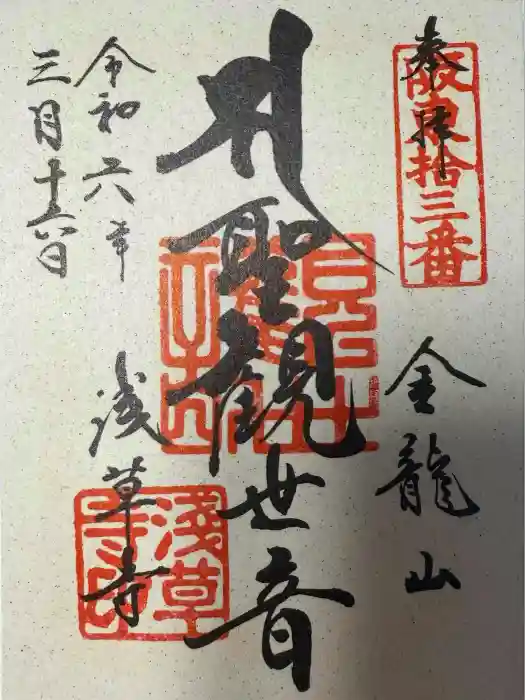 奉拝
阪東拾三番
金龍山
聖観世音
浅草寺
令和六年
三月十六日
淺草寺印